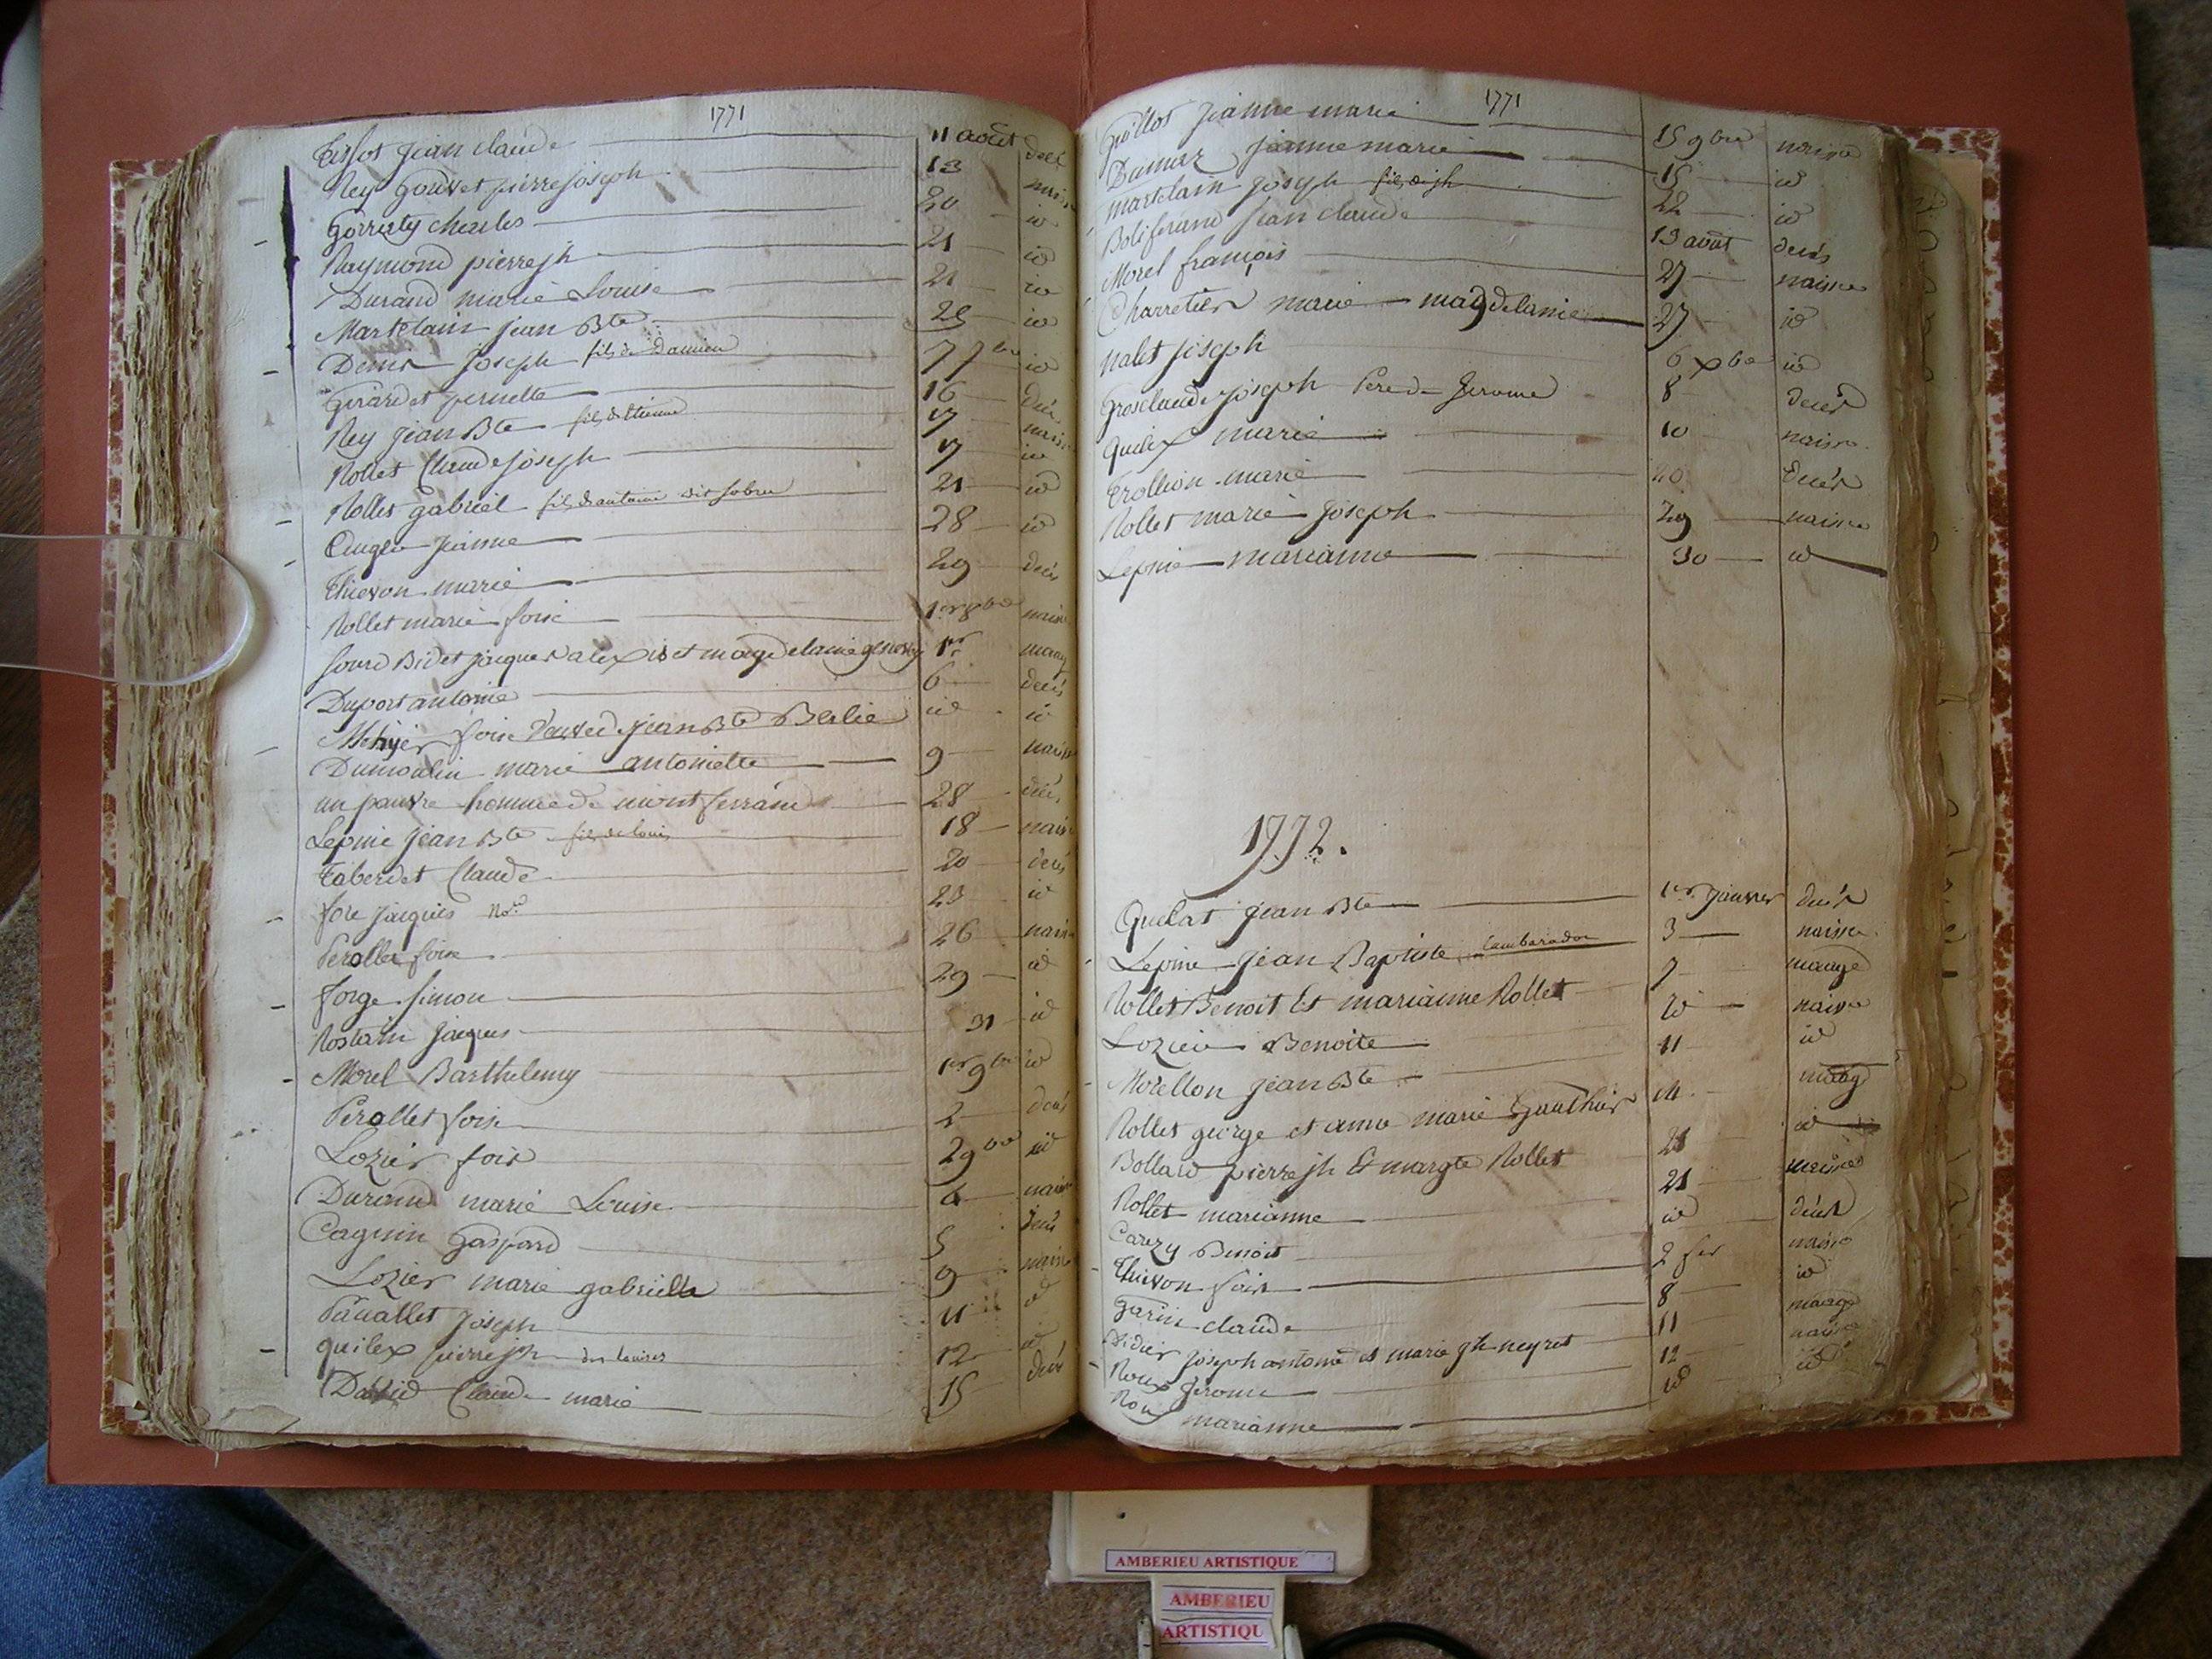 1771
Tissot jean claude 11 août décè
Rey Gouvet pierre joseph 13 naiss
Gorrity charles 20 id
Raymond pierre jh 21 id
Durand marie Louise 21 id
Martelain jean Bte 25 id
Denis Joseph fils de Damien 7 7bre id
Girardet pernette 16 décè
Rey jean Bte fils d'Etienne 17 naiss
Rollet Claude joseph 17 id
Rollet gabriel fils d'antoine dit 21 id
jeanne 28 id
Thievon marie 29 décès
Rollet marie foise 1er 8bre naiss
jacques alexis et magdelaine 1er mariag
Duport antoine 6 décès
foise veuve de jean Bte Berlie id id
Dumoulin marie antoinette 9 naiss
un pauvre homme de montferrand 28 décè
Lepine jean Bte fils de louis 18 naiss
Taberdet Claude 20 décès
jacques 23 id
Perollet foise 26 naiss
forge simon 29 id
Rostain jacques 31 id
Morel Barthelemy 1er 9bre id
Perollet foise 2 décès
Lozier fois 2 9bre id
Durand marie Louise 4 naiss
Cagnin Gaspard 5 décès
Lozier marie gabrielle 9 naiss
Joseph 11 id
quilex pierre jh des louises 12 id
David Claude marie 15 décè
1771
Guillot jeanne marie 15 9bre naissa
Dumar jeanne marie 15 id
Martelain joseph fils de jh 22 id
jean claude 13 août décès
Morel françois 27 naissa
Charretier marie magdelaine 27 id
Nalet joseph 6 xbre id
Grosclaude joseph Pere de Jerome 8 décès
quilex marie 10 naissa
Trollion marie 20 décès
Rollet marie joseph 29 naissa
Lepine marianne 30 id
1772.
Quelat jean Bte 1er janvier décès
Lepine jean Baptiste 3 naissa
Rollet Benoit Et marianne Rollet 7 mariage
Lozier Benoite id naissa
Morellon jean Bte 11 id
Rollet george et anne marie Gauthier 14 mariag
Bollard pierre jh Et margte Rollet 21 id
Rollet marianne 21 naissa
Carezy Benoit id décès
Thievon fois 2 fer naissa
Garin claude 8 id
Didier joseph antoine et marie jh neyret 11 mariage
Roux jerome 12 naissa
Roux marianne id id
AMBERIEU ARTISTIQUE
AMBERIEU
ARTISTIQU